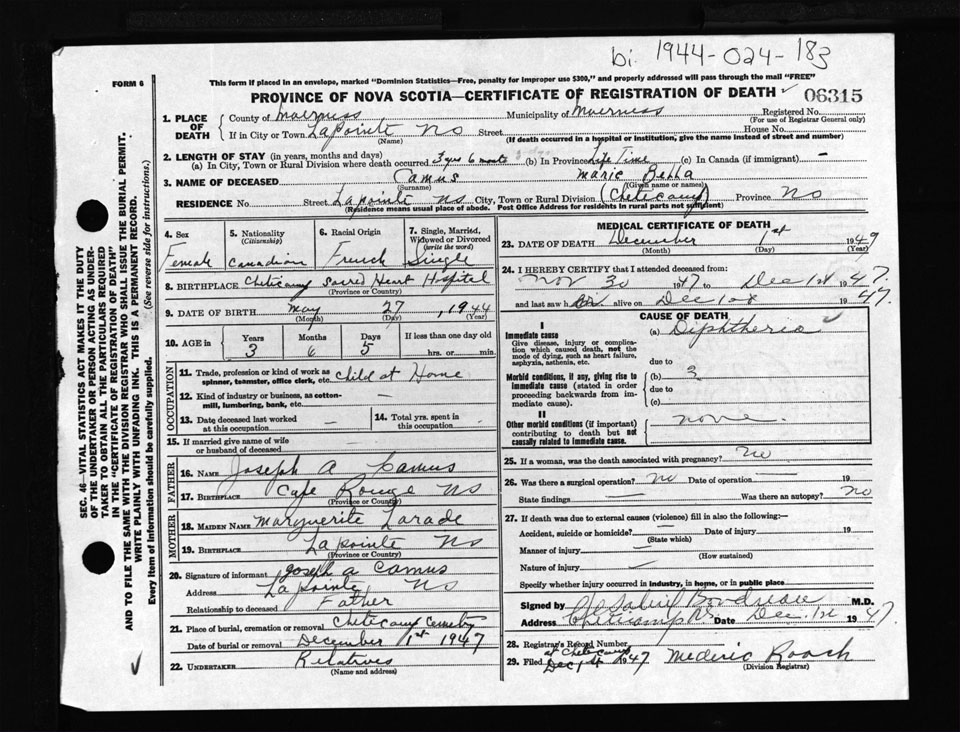 bi. 1944-024-183
FORM 6
This form if placed in an envelope, marked "Dominion Statistics—Free, penalty for improper use $300," and properly addressed will pass through the mail "FREE"
PROVINCE OF NOVA SCOTIA—CERTIFICATE OF REGISTRATION OF DEATH ✓ 06315
1. PLACE OF DEATH
County of Inverness Municipality of Inverness Registered No.
(For use of Registrar General only)
If in City or Town Lapointe NS Street House No.
(Name) (If death occurred in a hospital or institution, give the name instead of street and number)
2. LENGTH OF STAY (in years, months and days)
(a) In City, Town or Rural Division where death occurred 3 yrs 6 months (b) In Province Life Time (c) In Canada (if immigrant) —
3. NAME OF DECEASED Camus Marie Bella
(Surname) (Given name or names)
RESIDENCE No. Street Lapointe NS City, Town or Rural Division (Cheticamp) Province NS
(Residence means usual place of abode. Post Office Address for residents in rural parts not sufficient)
4. Sex
Female
5. Nationality
(Citizenship)
Canadian
6. Racial Origin
French
7. Single, Married, Widowed or Divorced
(write the word)
Single
8. BIRTHPLACE Cheticamp Sacred Heart Hospital
(Province or Country)
9. DATE OF BIRTH May 27, 1944
(Month) (Day) (Year)
10. AGE in Years Months Days If less than one day old
3 6 5 hrs. or min.
OCCUPATION
11. Trade, profession or kind of work as spinner, teamster, office clerk, etc. Child at Home
12. Kind of industry or business, as cotton-mill, lumbering, bank, etc. —
13. Date deceased last worked at this occupation —
14. Total yrs. spent in this occupation -
15. If married give name of wife or husband of deceased —
FATHER
16. NAME Joseph A Camus
17. BIRTHPLACE Cape Rouge NS
(Province or Country)
MOTHER
18. MAIDEN NAME Marguerite Larade
19. BIRTHPLACE Lapointe NS
(Province or Country)
20. Signature of informant Joseph A Camus
Address Lapointe NS
Relationship to deceased Father
21. Place of burial, cremation or removal Cheticamp Cemetry
Date of burial or removal December 1st 1947
22. UNDERTAKER Relatives
(Name and address)
MEDICAL CERTIFICATE OF DEATH
23. DATE OF DEATH December 1st 1949
(Month) (Day) (Year)
24. I HEREBY CERTIFY that I attended deceased from:
Nov 30 1947 to Dec 1st 1947.
and last saw h er alive on Dec 1st 1947.
CAUSE OF DEATH
I
Immediate cause
Give disease, injury or complication which caused death, not the mode of dying, such as heart failure, asphyxia, asthenia, etc.
(a) Diphtheria ✓
due to
Morbid conditions, if any, giving rise to immediate cause (stated in order proceeding backwards from immediate cause).
(b) 3
due to
(c)
II
Other morbid conditions (if important) contributing to death but not causally related to immediate cause.
none.
25. If a woman, was the death associated with pregnancy? no
26. Was there a surgical operation? no Date of operation 19
State findings — Was there an autopsy? no
27. If death was due to external causes (violence) fill in also the following:—
Accident, suicide or homicide? — Date of injury 19
(State which)
Manner of injury —
(How sustained)
Nature of injury
Specify whether injury occurred in industry, in home, or in public place
Signed by Boudreau M.D.
Address Cheticamp NS Date Dec. 1st 1947
28. Registrar's Record Number
at Cheticamp
29. Filed Dec 1st 1947 Mederic Roach
(Division Registrar)
SEC. 46—VITAL STATISTICS ACT MAKES IT THE DUTY
OF THE UNDERTAKER OR PERSON ACTING AS UNDER-
TAKER TO OBTAIN ALL THE PARTICULARS REQUIRED
IN THE "CERTIFICATE OF REGISTRATION OF DEATH"
AND TO FILE THE SAME WITH THE DIVISION REGISTRAR WHO SHALL ISSUE THE BURIAL PERMIT.
WRITE PLAINLY WITH UNFADING INK. THIS IS A PERMANENT RECORD.
Every item of information should be carefully supplied. (See reverse side for instructions.)
✓